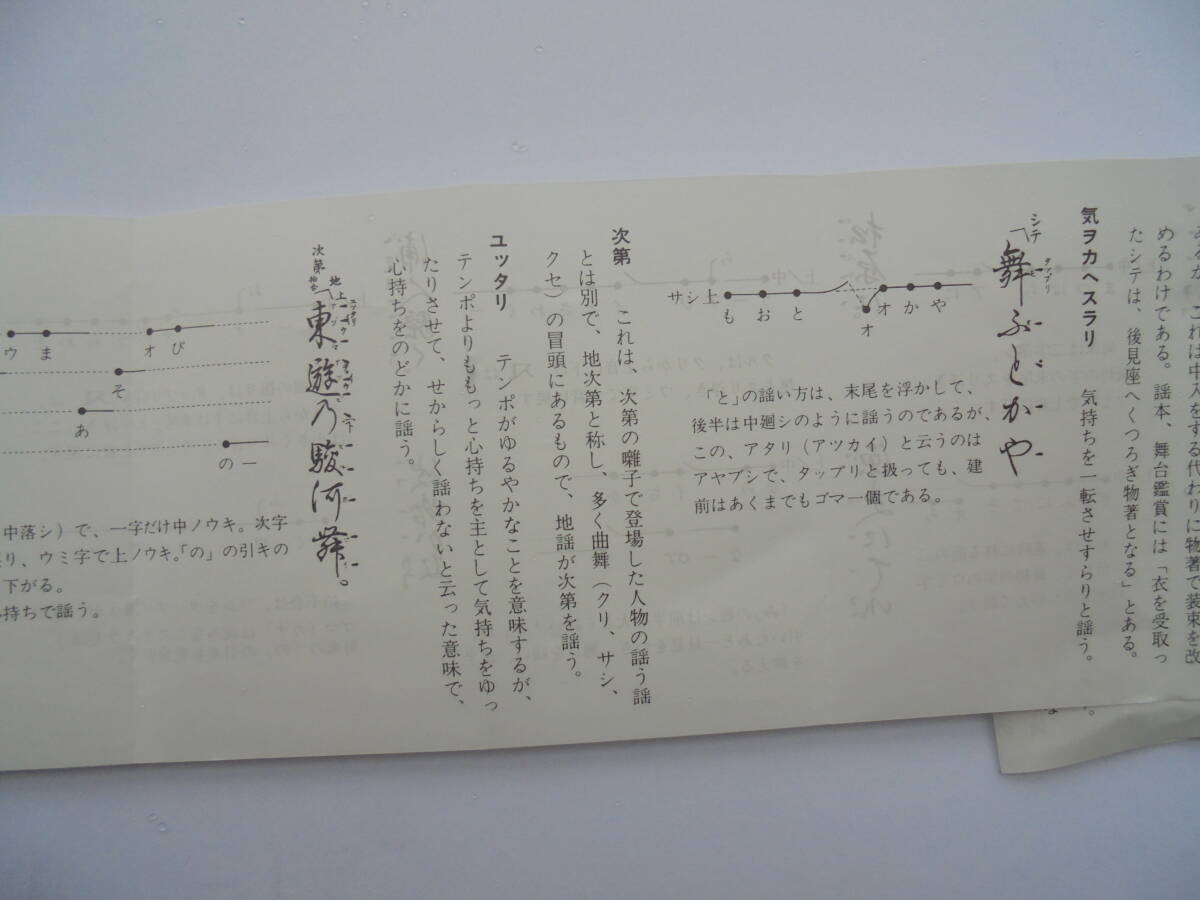 これは中入をする代わりに物著で装束を改
めるわけである。謡本、舞台鑑賞には「衣を受取っ
たシテは、後見座へくつろぎ物著となる」とある。
気ヲカヘスラリ　気持ちを一転させすらりと謡う。
シテ 舞ふとかや
サシ上 も お と オ オ か や
「と」の謡い方は、末尾を浮かして、
後半は中廻シのように謡うのであるが、
この、アタリ（アツカイ）と云うのは
アヤブシで、タップリと扱っても、建
前はあくまでもゴマ一個である。
次第　これは、次第の囃子で登場した人物の謡う謡
とは別で、地次第と称し、多く曲舞（クリ、サシ、
クセ）の冒頭にあるもので、地謡が次第を謡う。
ユッタリ　テンポがゆるやかなことを意味するが、
テンポよりももっと心持ちを主として気持ちをゆっ
たりさせて、せからしく謡わないと云った意味で、
心持ちをのどかに謡う。
次第 地上 東遊乃駿河舞。
ウ ま オ び
そ
あ
のー
中落シ）で、一字だけ中ノウキ。次字
り、ウミ字で上ノウキ。「の」の引キの
下がる。
持ちで謡う。